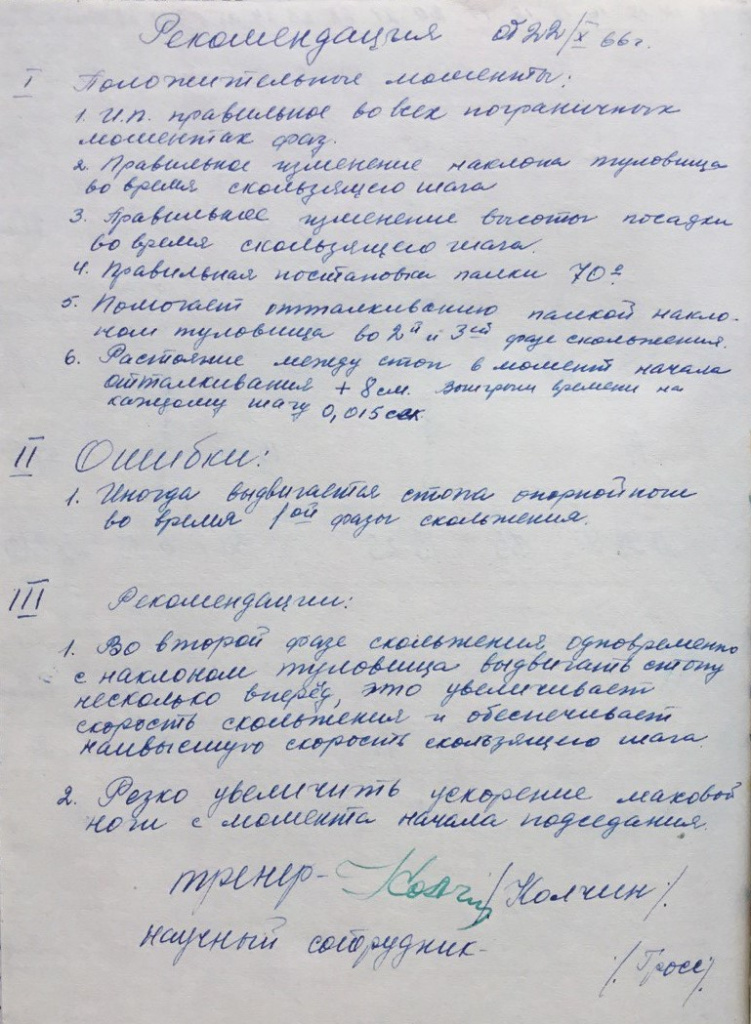 Рекомендация от 22/X 66г.
I Положительные моменты:
1. И.п. правильное во всех пограничных
моментах фаз.
2. Правильное изменение наклона туловища
во время скользящего шага
3. Правильное изменение высоты посадки
во время скользящего шага.
4. Правильная постановка палки 70°
5. Помогает отталкиванию палкой накло-
ном туловища во 2й и 3ей фазе скольжения.
6. Растояние между стоп в момент начала
отталкивания + 8 см. Выигрыш времени на
каждому шагу 0,015 сек.
II Ошибки:
1. Иногда выдвигается стопа опорной ноги
во время 1ой фазы скольжения.
III Рекомендации:
1. Во второй фазе скольжения, одновременно
с наклоном туловища выдвигать стопу
несколько вперёд, это увеличивает
скорость скольжения и обеспечивает
наивысшую скорость скользящего шага.
2. Резко увеличить ускорение маховой
ноги с момента начала подседания.
тренер- Колчин /Колчин/.
научный сотрудник-
/Гросс/.